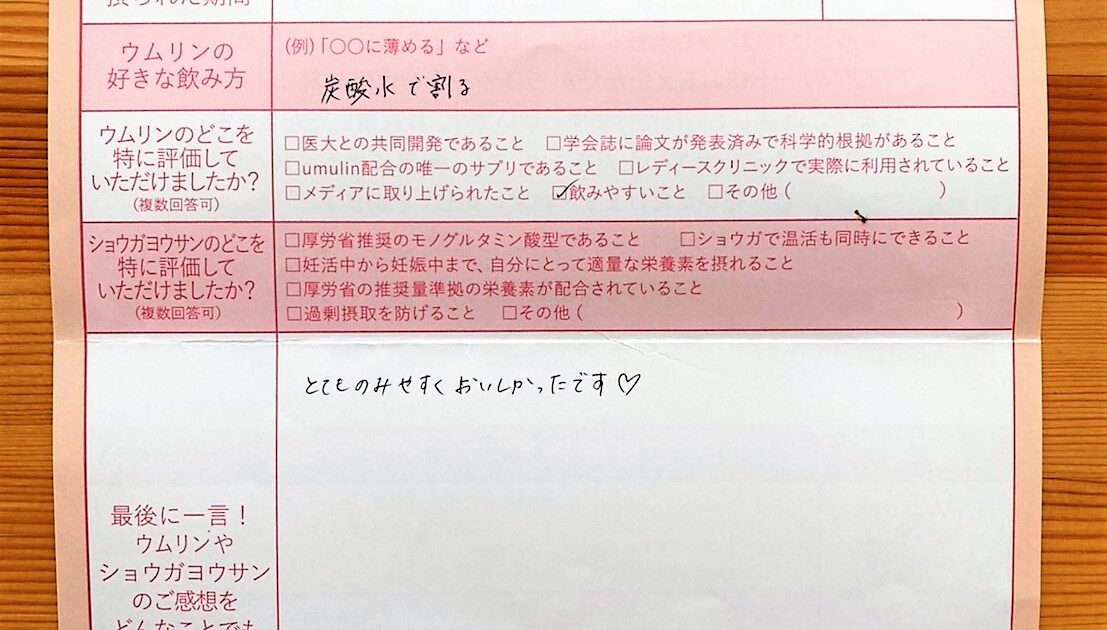 摂られた期間
ウムリンの
好きな飲み方
(例)「〇〇に薄める」など
炭酸水で割る
ウムリンのどこを
特に評価して
いただけましたか?
(複数回答可)
□医大との共同開発であること □学会誌に論文が発表済みで科学的根拠があること
□umulin配合の唯一のサプリであること □レディースクリニックで実際に利用されていること
□メディアに取り上げられたこと ☑飲みやすいこと □その他 ( )
ショウガヨウサンのどこを
特に評価して
いただけましたか?
(複数回答可)
□厚労省推奨のモノグルタミン酸型であること □ショウガで温活も同時にできること
□妊活中から妊娠中まで、自分にとって適量な栄養素を摂れること
□厚労省の推奨量準拠の栄養素が配合されていること
□過剰摂取を防げること □その他 ( )
とてものみやすくおいしかったです♡
最後に一言!
ウムリンや
ショウガヨウサン
のご感想を
どんなことでも